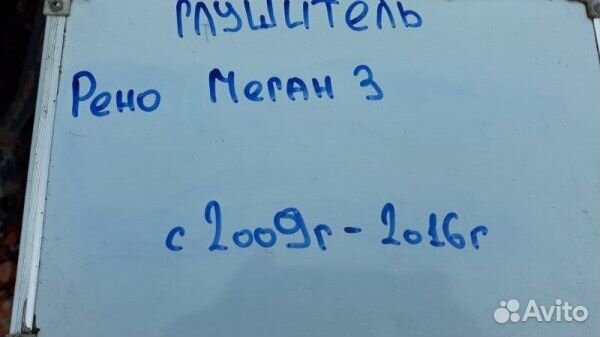 глушитель
Рено Меган 3
с 2009г - 2016г
Avito